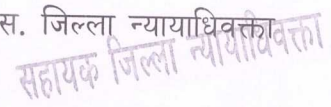 स. जिल्ला न्यायाधिवक्ता
सहायक जिल्ला न्यायाधिवक्ता